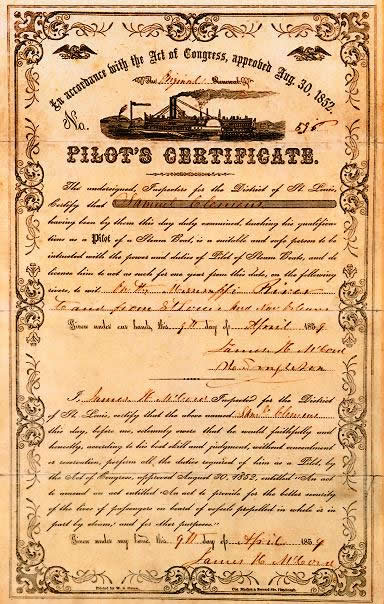 In accordance with the Act of Congress, approved Aug. 30, 1852.
The Original Renewal
No. 
PILOT'S CERTIFICATE.
The undersigned, Inspectors for the District of St. Louis,
Certify that Samuel Clemens
having been by them this day duly examined, touching his qualifica-
tions as a Pilot of a Steam Boat, is a suitable and safe person to be
intrusted with the power and duties of Pilot of Steam Boats, and do
license him to act as such for one year from this date, on the following
rivers, to wit: On the Mississippi River
to and from St Louis and New Orleans
Given under our hands, this 9th day of April 1859
James H McCord
I, James H. McCord Inspector for the District
of St. Louis, certify that the above named Saml. Clemens
this day, before me, solemnly swore that he would faithfully and
honestly, according to his best skill and judgment, without concealment
or reservation, perform all the duties required of him as a Pilot, by
the Act of Congress, approved August 30, 1852, entitled "An act
to amend an act entitled 'An act to provide for the better security
of the lives of passengers on board of vessels propelled in whole or in
part by steam,' and for other purposes."
Given under my hand, this 9th day of April 1859
James H McCord
Printed by